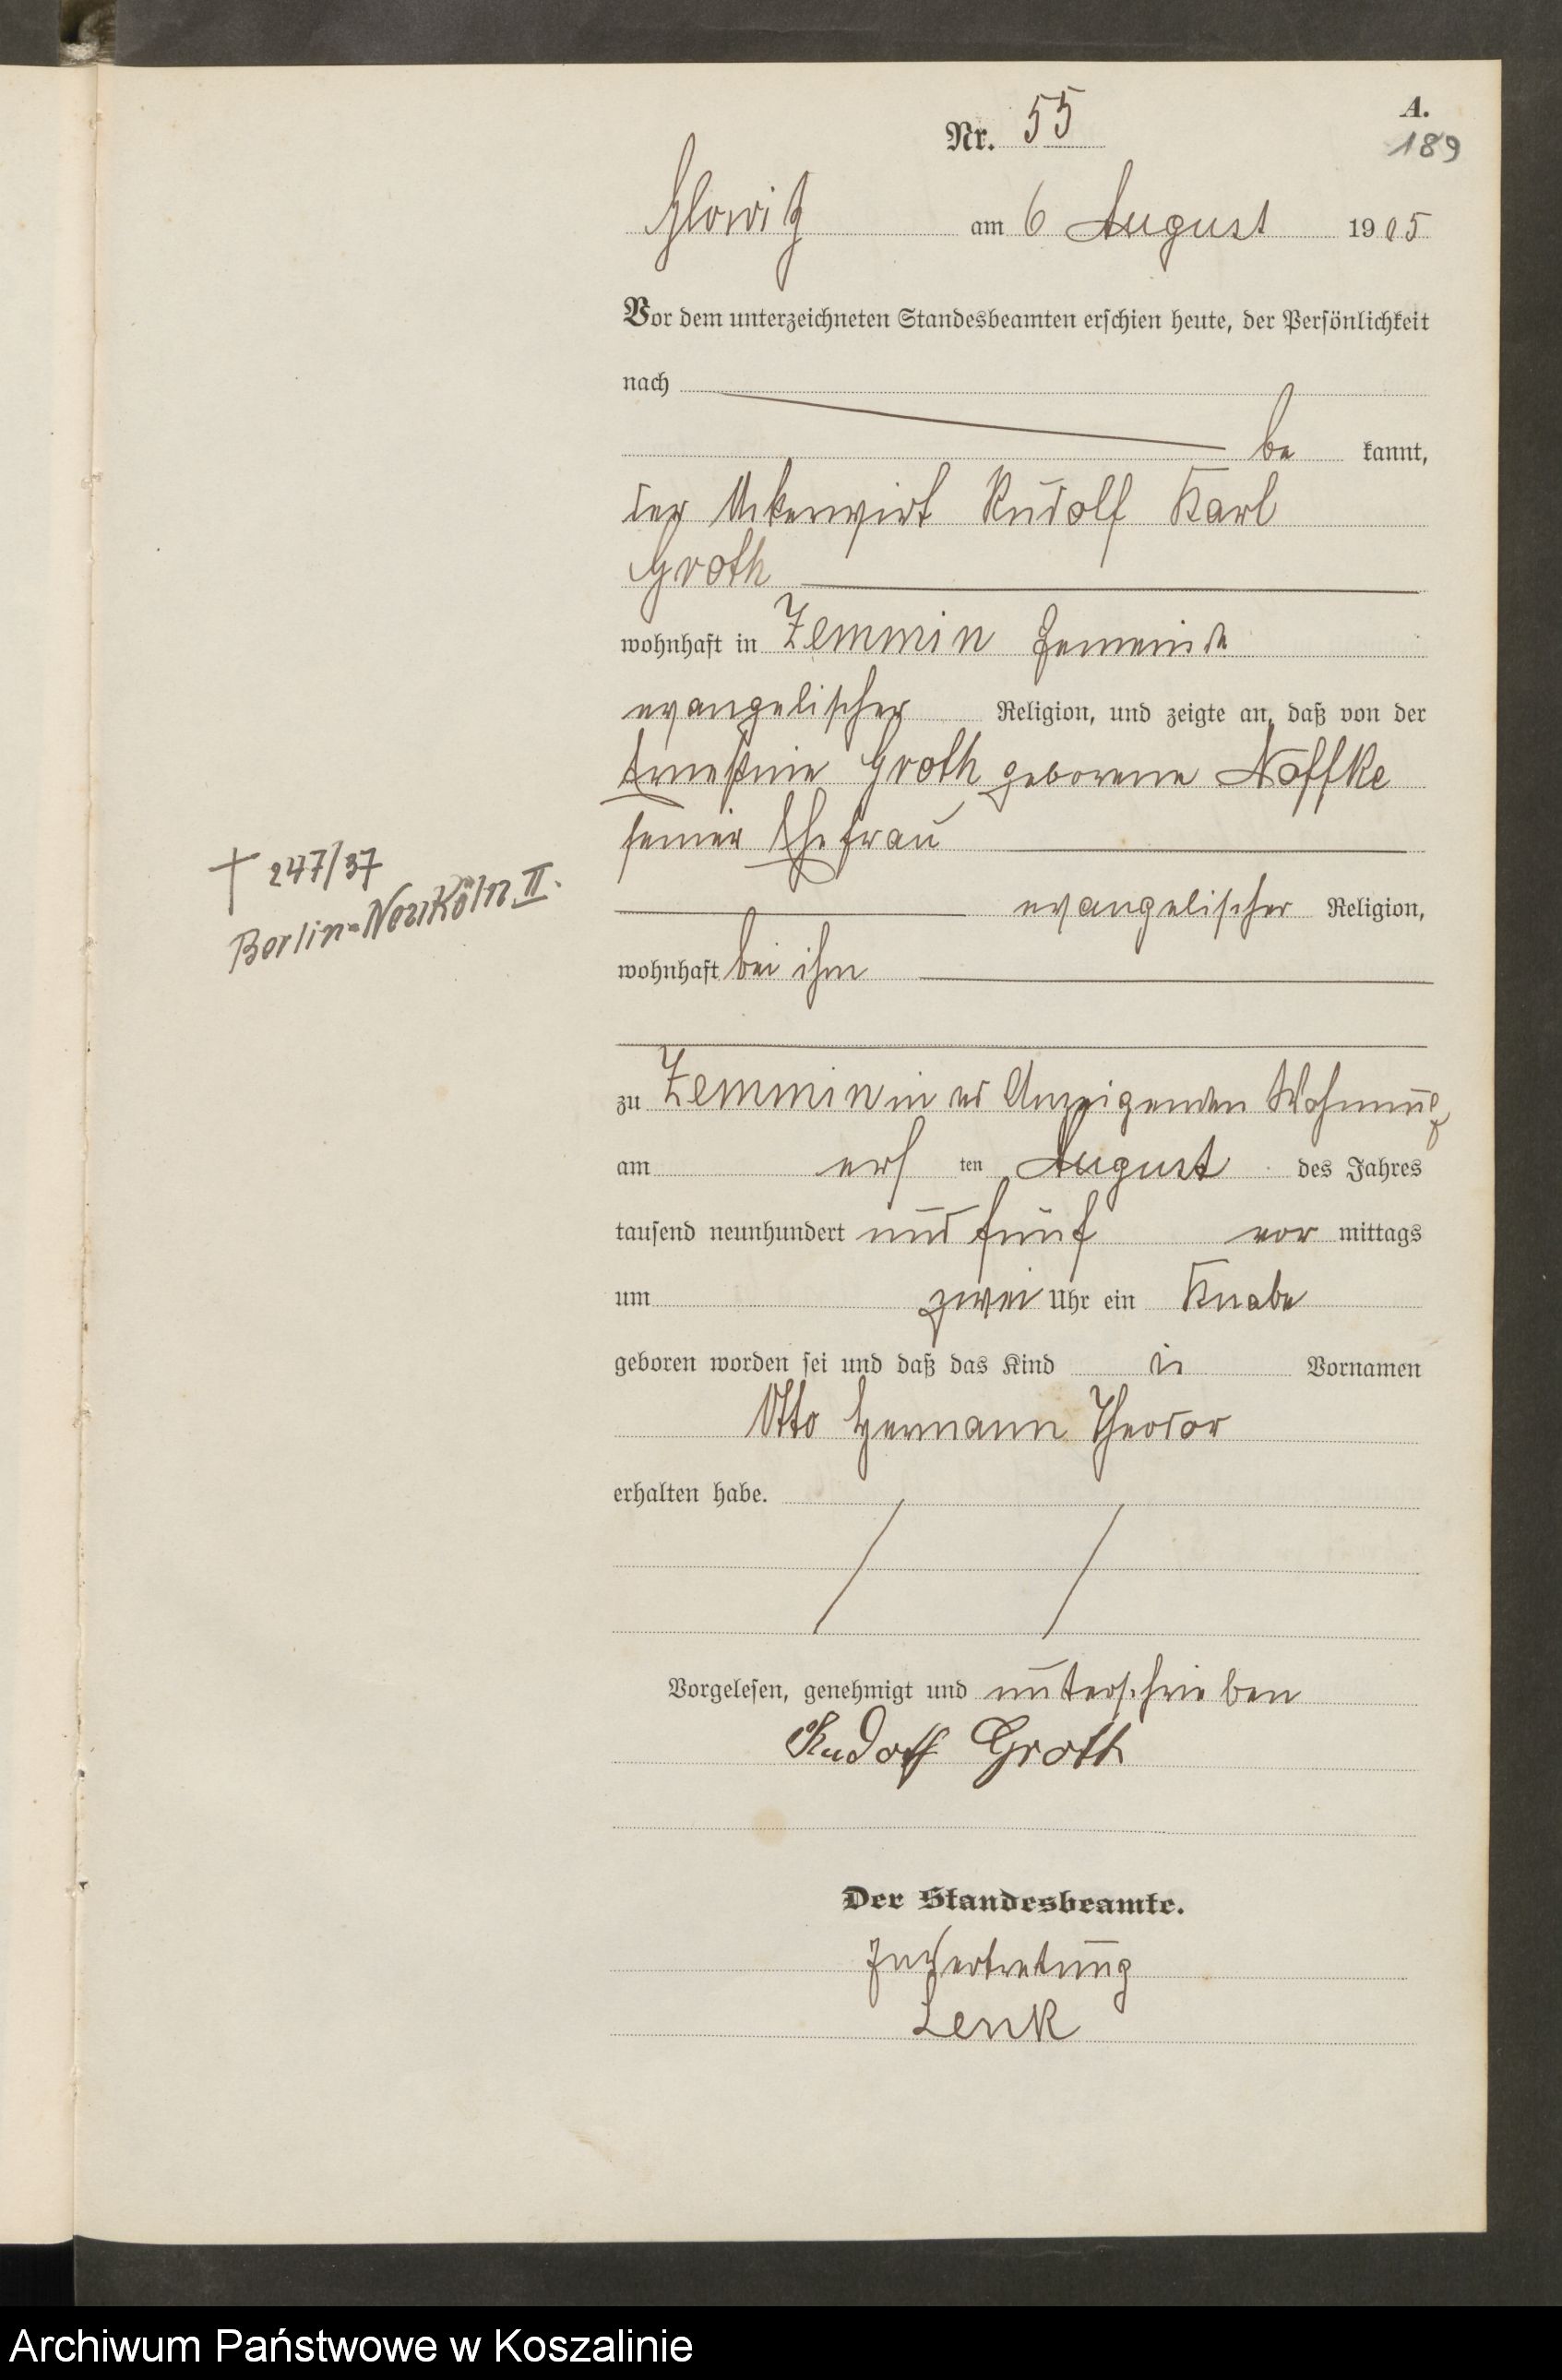 A.
Nr. 55
189
Glowitz am 6 August 1905
Vor dem unterzeichneten Standesbeamten erschien heute, der Persönlichkeit
nach
be kannt,
der Rudolf Karl
Groth
wohnhaft in Zemmin Gemeinde
evangelischer Religion, und zeigte an, daß von der
Ernestine Groth geborene Noffke
seiner Ehefrau
† 247/37
evangelischer Religion,
Berlin-Neukölln II.
wohnhaft bei ihm
zu Zemmin in des Anzeigenden Wohnung
am ersten August des Jahres
tausend neunhundert und fünf vor mittags
um zwei Uhr ein Knabe
geboren worden sei und daß das Kind die Vornamen
Otto Hermann Theodor
erhalten habe.
Vorgelesen, genehmigt und unterschrieben
Rudolf Groth
Der Standesbeamte.
In Vertretung
Lenk
Archiwum Państwowe w Koszalinie